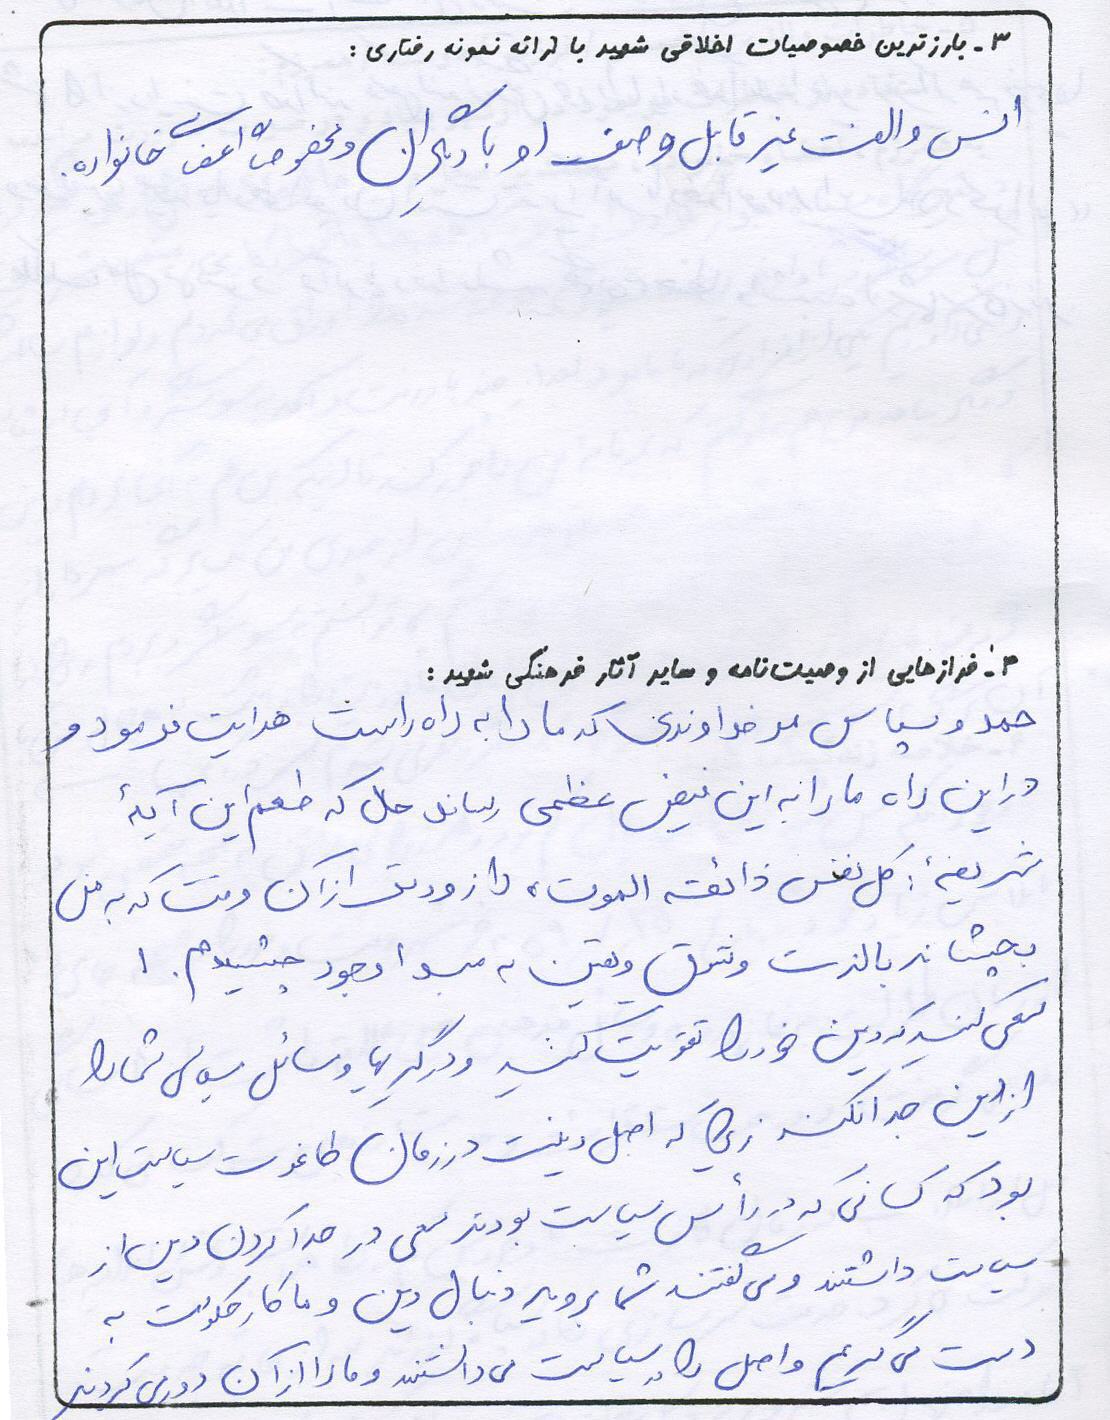 ۳- بارزترین خصوصیات اخلاقی شهید با ارائه نمونه رفتاری:
انس و الفت غیر قابل وصف او با دیگران و مخصوصاً اعضای خانواده.
۴- فرازهایی از وصیت‌نامه و سایر آثار فرهنگی شهید:
حمد و سپاس مر خداوندی که ما را به راه راست هدایت فرمود و
در این راه ما را به این فیض عظمی رساند حال که طعم این آیهٔ
شریفهٔ: کل نفس ذائقه الموت، را زودتر از آن وقت که به من
بچشاند با لذت و شوق و یقین به مبدا وجود چشیدم.
سعی کنید که دین خود را تقویت کنید و درگیریها و مسائل سیاسی شما را
از دین جدا نکند زیرا که اصل در زمان طاغوت سیاست این
بود که کسانی که در رأس سیاست بودند سعی در جدا کردن دین از
سیاست داشتند و می گفتند شما بروید دنبال دین و ما کار حکومت به
دست می گیریم و اصل را سیاست می دانستند و ما را از آن دور می کردند